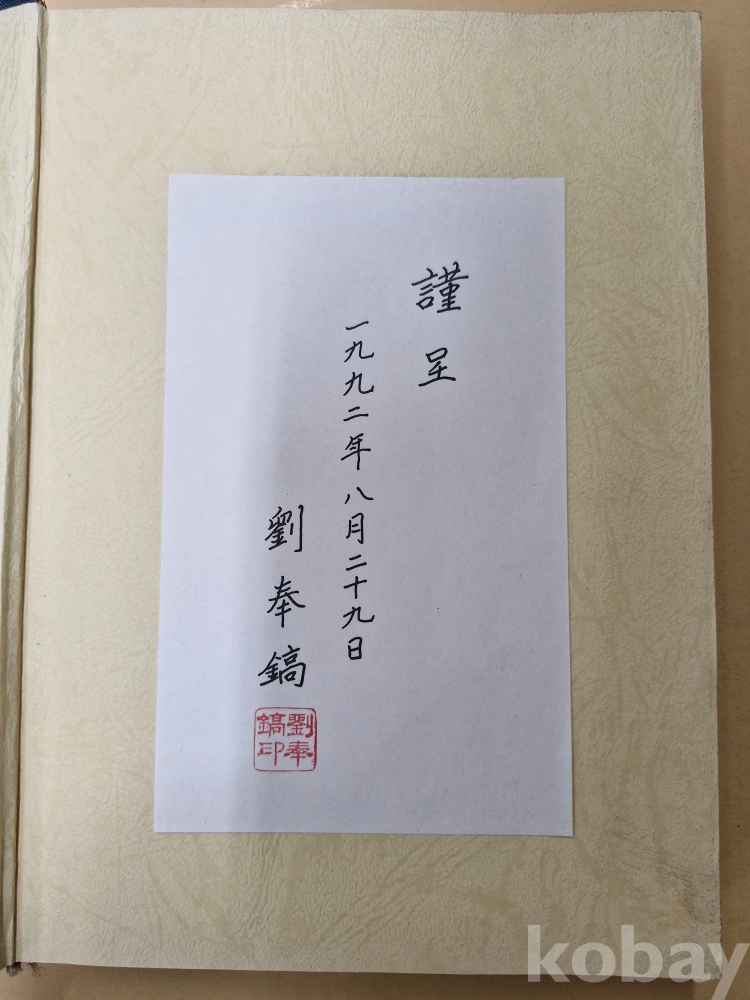 謹呈
一九九二年八月二十九日
劉奉鎬
劉奉
鎬印
kobay